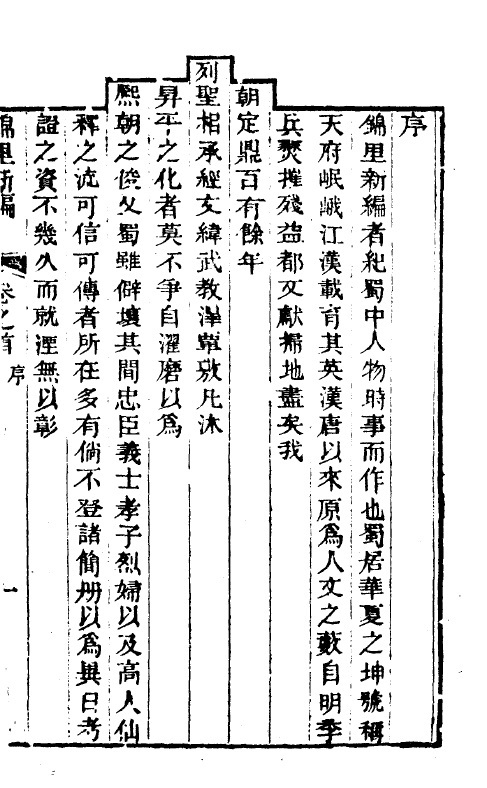 序
錦里新編者紀蜀中人物時事而作也蜀居華夏之坤號稱
天府岷峨江漢載育其英漢唐以來原爲人文之藪自明季
兵燹摧殘益都文獻掃地盡矣我
朝定鼎百有餘年
列聖相承經文緯武教澤覃敷凡沐
昇平之化者莫不爭自濯磨以爲
熙朝之俊乂蜀雖僻壤其間忠臣義士孝子烈婦以及高人仙
釋之流可信可傳者所在多有倘不登諸簡册以爲異日考
證之資不幾久而就湮無以彰
錦里新編 卷之首 序 一